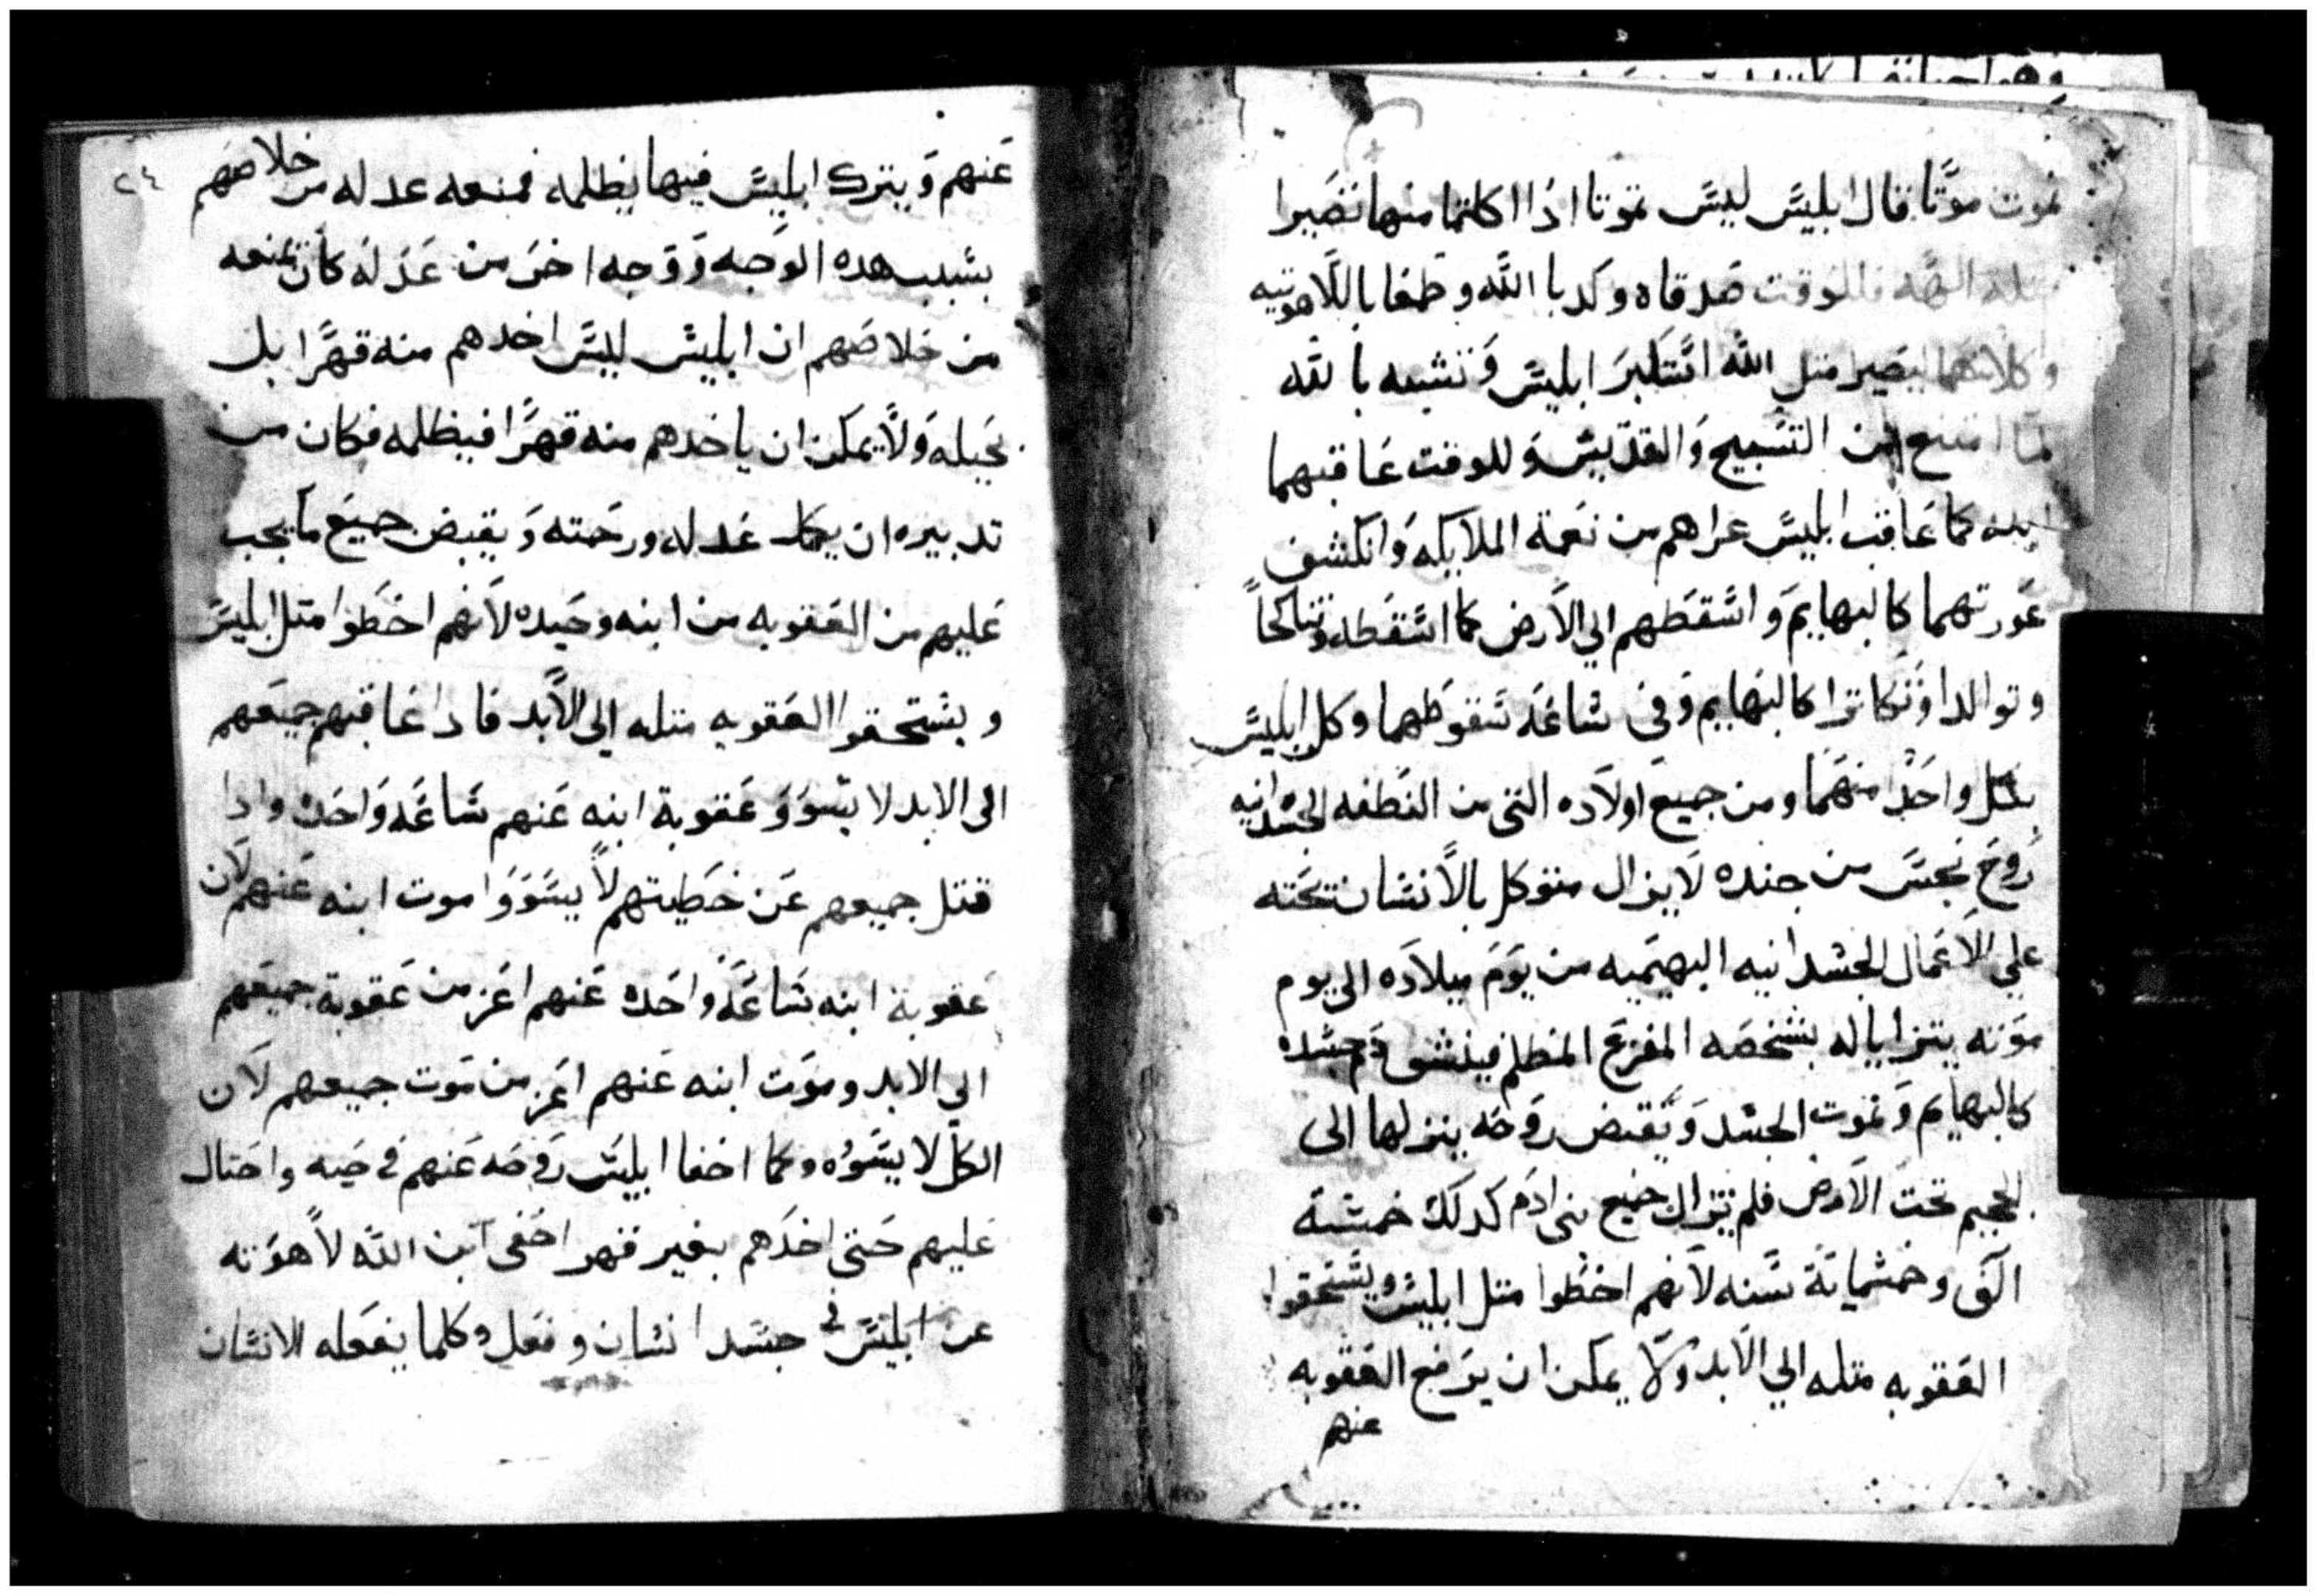 تموت موتا قال ابليس ليس تموتا اذا اكلتما منها تصيرا
الهه فللوقت صدقاه وكدبا الله وطمعا باللاهوتيه
وكلاهما ليصيرا متل الله اتكبر ابليس وتشبه بالله
لما امتنع من التسبيح والتقديس وللوقت عاقبهما
ابنه كما عاقب ابليس عراهم من نعمة الملايكه وانكشف
عورتهما كالبهايم واسقطهم الي الارض كما اسقطه وتناكحا
وتوالدا وتكاترا كالبهايم وفي ساعة سقوطهما وكل ابليس
بكل واحد منهما ومن جميع اولاده التي من النطفه الجسدانيه
روح نجس من جنده لا يزال متوكل بالانسان تحته
علي الاعمال الجسدانيه البهيميه من يوم ميلاده الى يوم
موته يتزايا له بشخصه المفزع المظلم فينشق دم جسده
كالبهايم وتموت الجسد ويقبض روحه ينزلها الى
الجحيم تحت الارض فلم تزال جميع بني ادم كدلك خمسة
الف وخمسماية سنه لانهم اخطوا متل ابليس ويستحقوا
العقوبه متله الي الابد ولا يمكن ان يرفع العقوبه
عنهم
٢٤
عنهم ويترك ابليس فيها يظلمه فمنعه عدله من خلاصهم
بسبب هده الوجه ووجه اخر من عدله كان تمنعه
من خلاصهم ان ابليس ليس اخدهم منه قهرا بل
بحيله ولا يمكن ان ياخدهم منه قهرا فيظلمه فكان من
تدبيره ان يكمل عدله ورحمته ويقبض جميع ما يجب
عليهم من العقوبه من ابنه وحيده لانهم اخطوا متل ابليس
ويستحقوا العقوبه متله الي الابد فادا عاقبهم جميعهم
الى الابد لا يسوو عقوبة ابنه عنهم ساعه واحده وادا
قتل جميعهم عن خطيتهم لا يسووا موت ابنه عنهم لان
عقوبة ابنه ساعه واحده عنهم اعز من عقوبة جميعهم
الي الابد وموت ابنه عنهم اعز من موت جميعهم لان
الكل لا يسووه وكما اخفا ابليس روحه عنهم في حيه واحتال
عليهم حتى اخدهم بغير قهر اخفى ابن الله لاهوته
عن ابليس في جسد انسان وفعل كلما يفعله الانسان